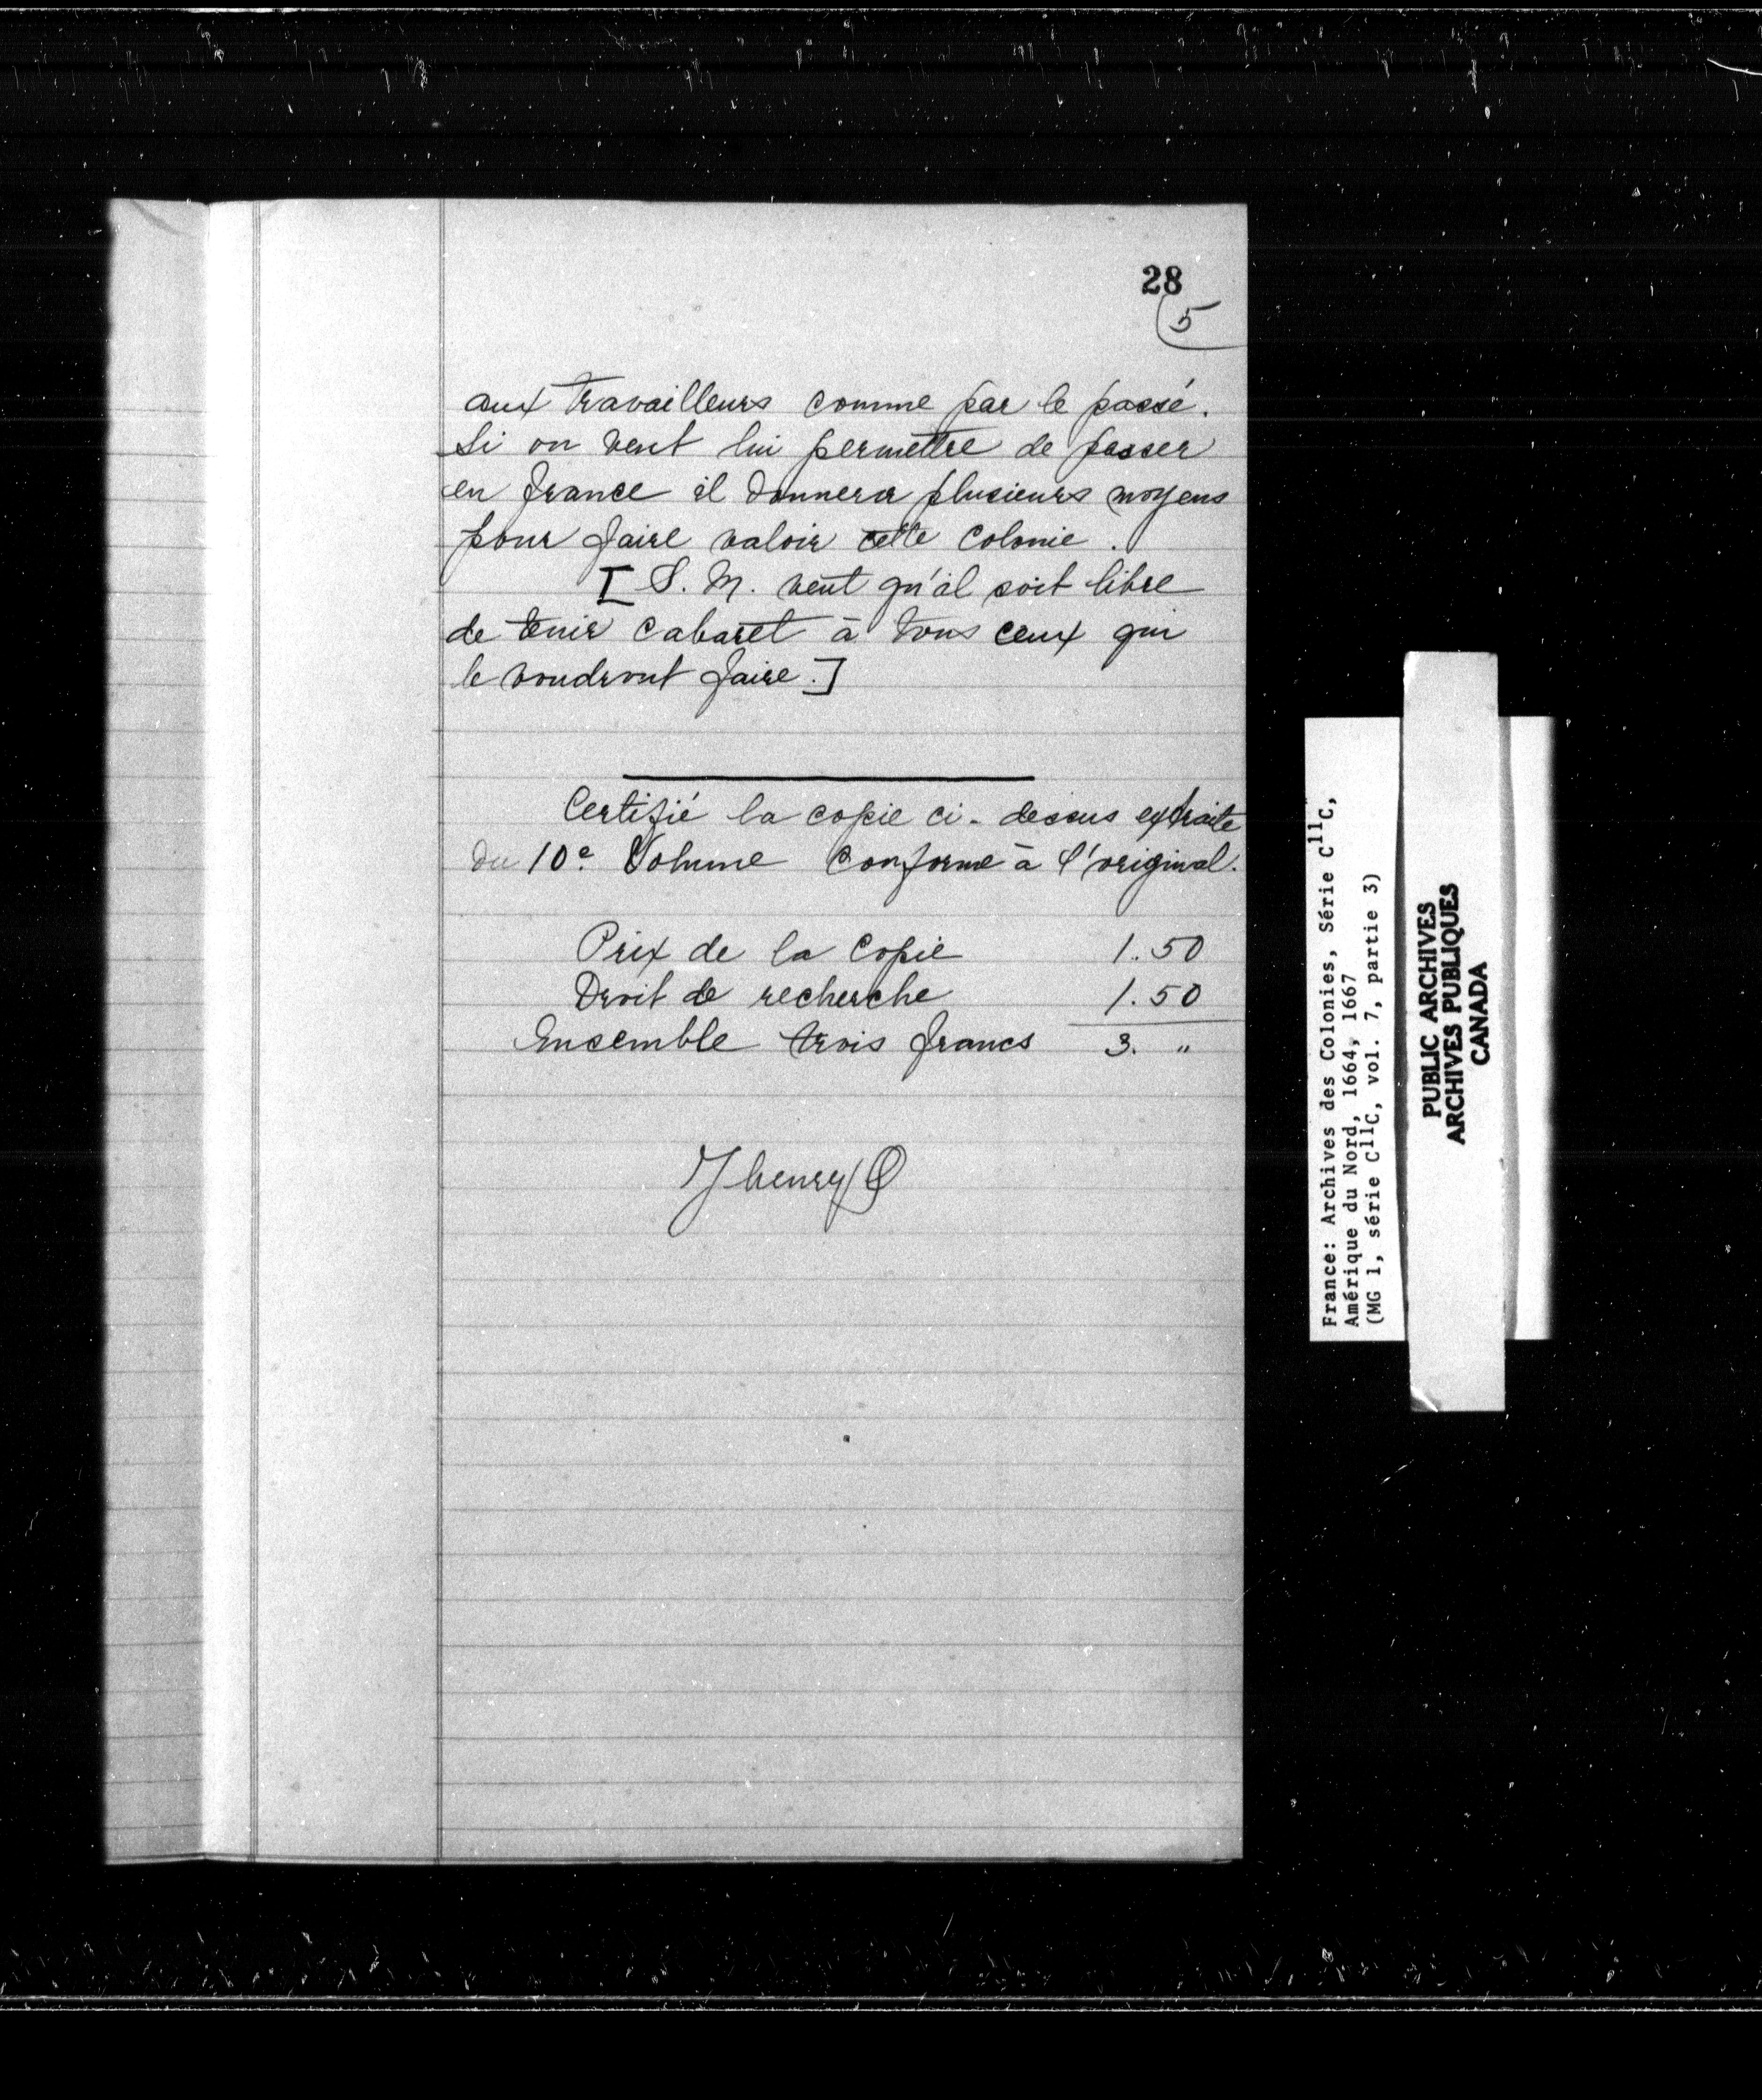 28
5
aux travailleurs comme par le passé.
Si on veut lui permettre de passer
en france il donnera plusieurs moyens
pour faire valoir cette Colonie.
[S. M. veut qu'il soit libre
de tenir Cabaret à tous ceux qui
le voudront faire.]
Certifié la copie ci-dessus extraite
du 10e Volume Conforme à l'original.
Prix de la Copie 1.50
Droit de recherche 1.50
Ensemble trois francs 3. "
henry
France: Archives des Colonies, Série C11C,
Amérique du Nord, 1664, 1667
(MG 1, série C11C, vol. 7, partie 3)
PUBLIC ARCHIVES
ARCHIVES PUBLIQUES
CANADA